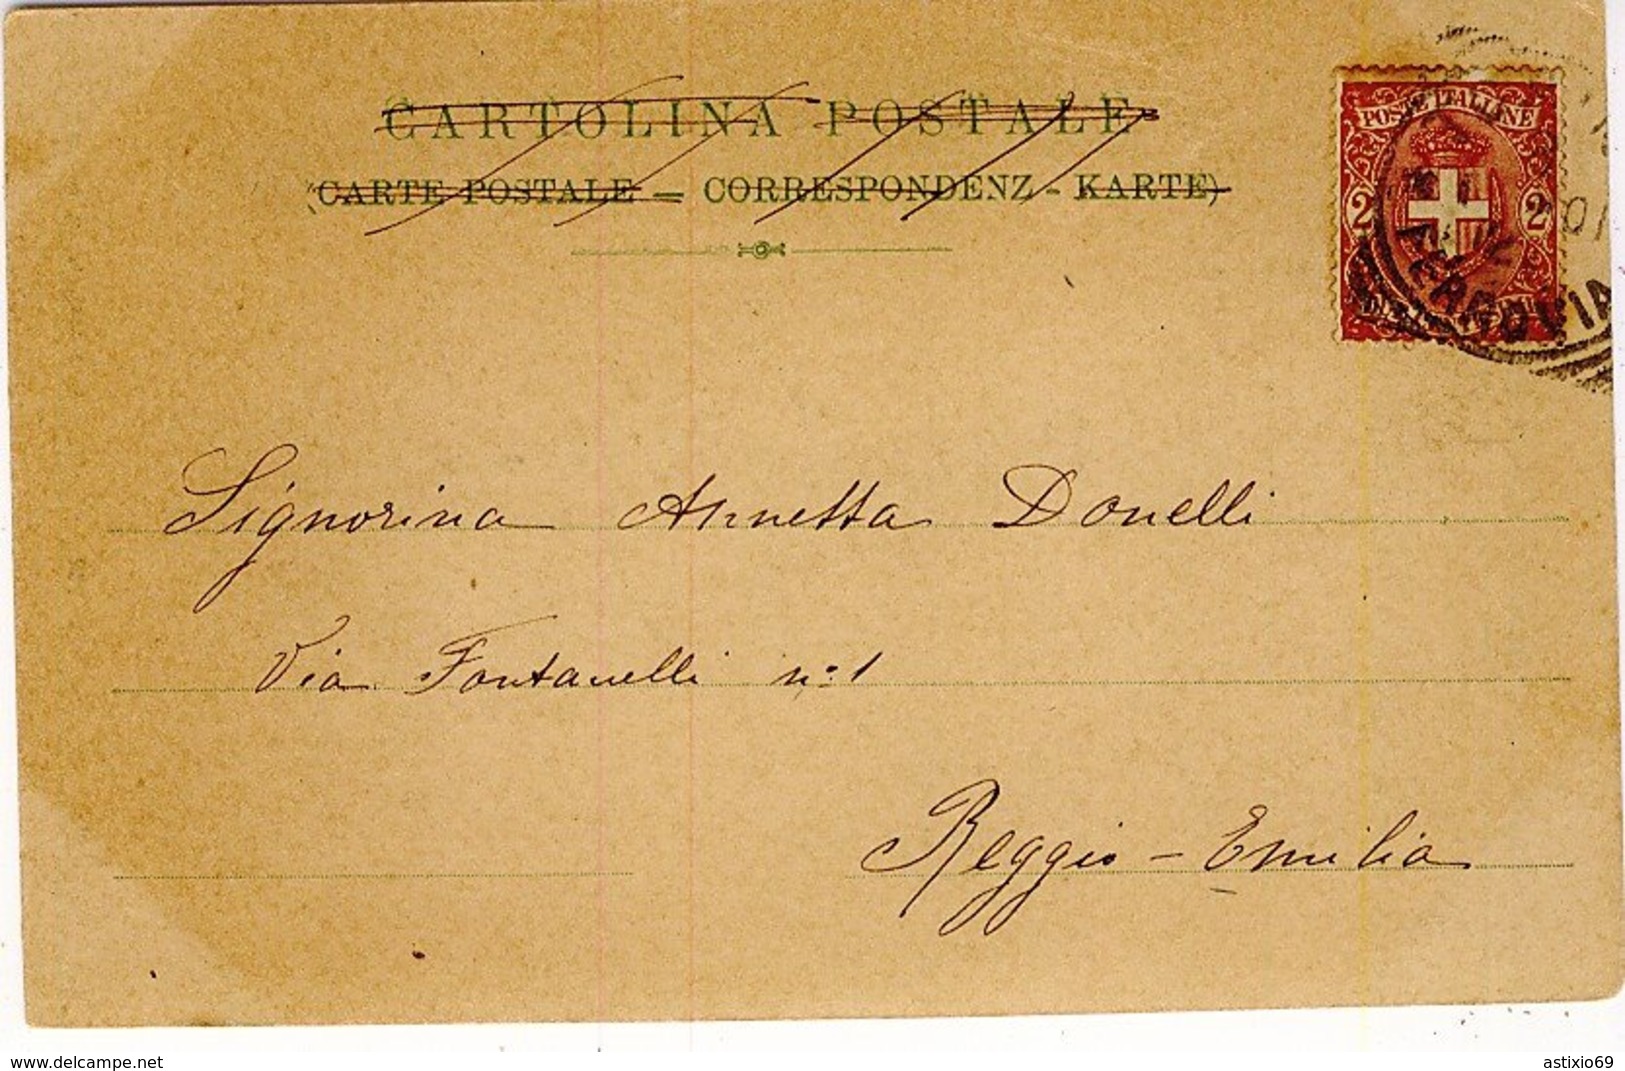 CARTOLINA POSTALE
(CARTE POSTALE = CORRESPONDENZ - KARTE)
POSTE ITALIANE
2 2
01
FERROVIA
Signorina Annetta Donelli
Via Fontanelli n:1
Reggio - Emilia
https://www.delcampe.net
astixio69